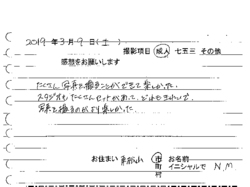 2019年 3月 9日(土)
撮影項目 成人 七五三 その他
感想をお願いします
たくさん写真を撮ることができて楽しかった。
スタジオもたくさんセットがあって、どれもきれいで、
写真を撮るのがより楽しかった。
お住まい 市町村 お名前 イニシャルで N.M